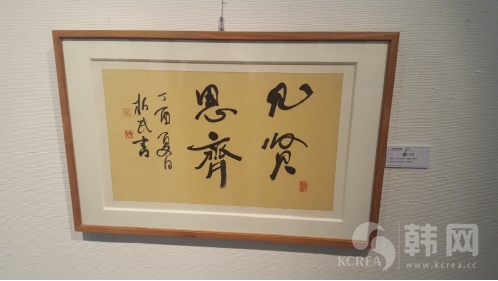 见贤
思齊
丁酉夏日
民書
韩网
KCREA www.kcrea.cc